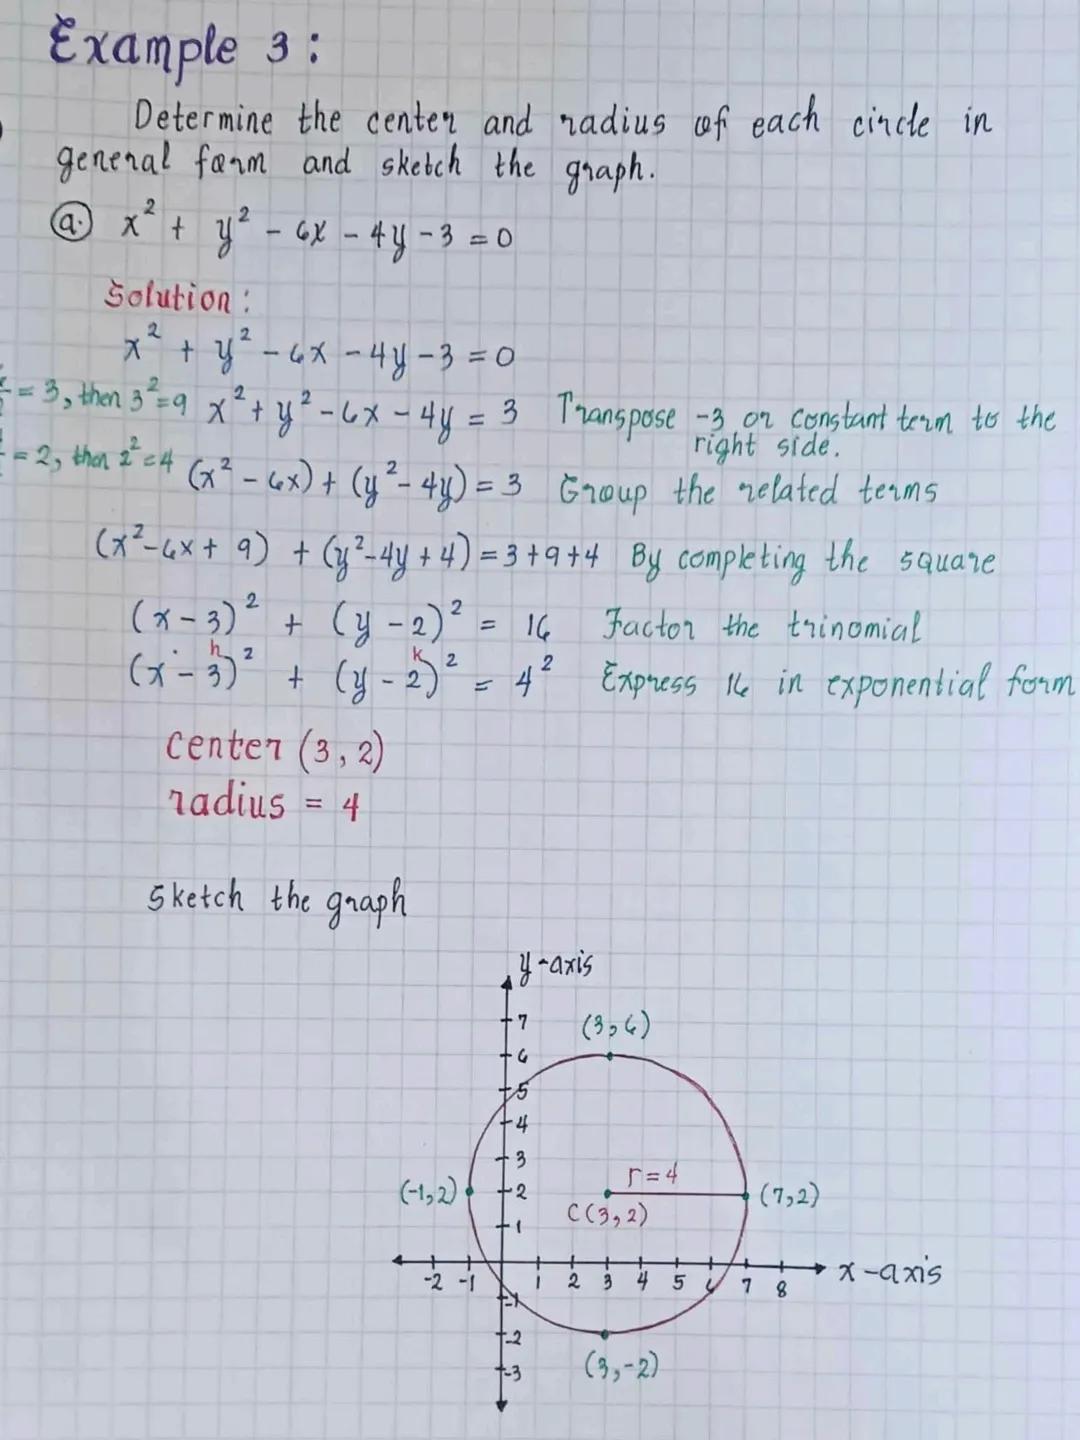 Example 3:
Determine the center and radius of each circle in
general form and sketch the graph.
a. x² + y² - 6x - 4y - 3 = 0
Solution:
x² + y² - 6x - 4y - 3 = 0
= 3, then 3² = 9 x² + y² - 6x - 4y = 3 Transpose -3 or constant term to the
right side.
= 2, then 2² = 4 (x² - 6x) + (y² - 4y) = 3 Group the related terms
(x² - 6x + 9) + (y² - 4y + 4) = 3 + 9 + 4 By completing the square
(x - 3)² + (y - 2)² = 16 Factor the trinomial
h k
(x - 3)² + (y - 2)² = 4² Express 16 in exponential form
center (3, 2)
radius = 4
Sketch the graph
y-axis
7
(3, 6)
6
5
4
3
(-1, 2) 2 r = 4 (7, 2)
C(3, 2)
1
x-axis
-2 -1 1 2 3 4 5 6 7 8
-1
-2
(3, -2)
-3